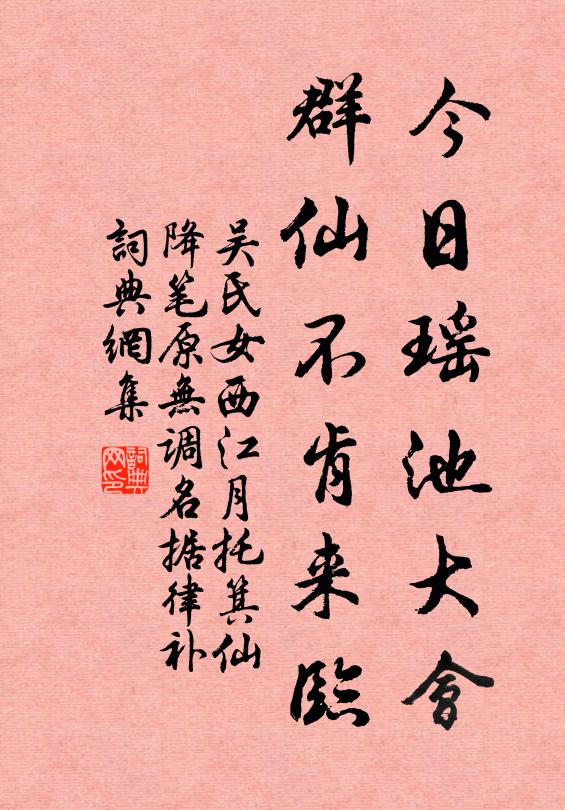 今日瑶池大會
群仙不肯来臨
吴氏女西江月托箕仙
降笔原無调名据律补
詞典網集
詞典网印